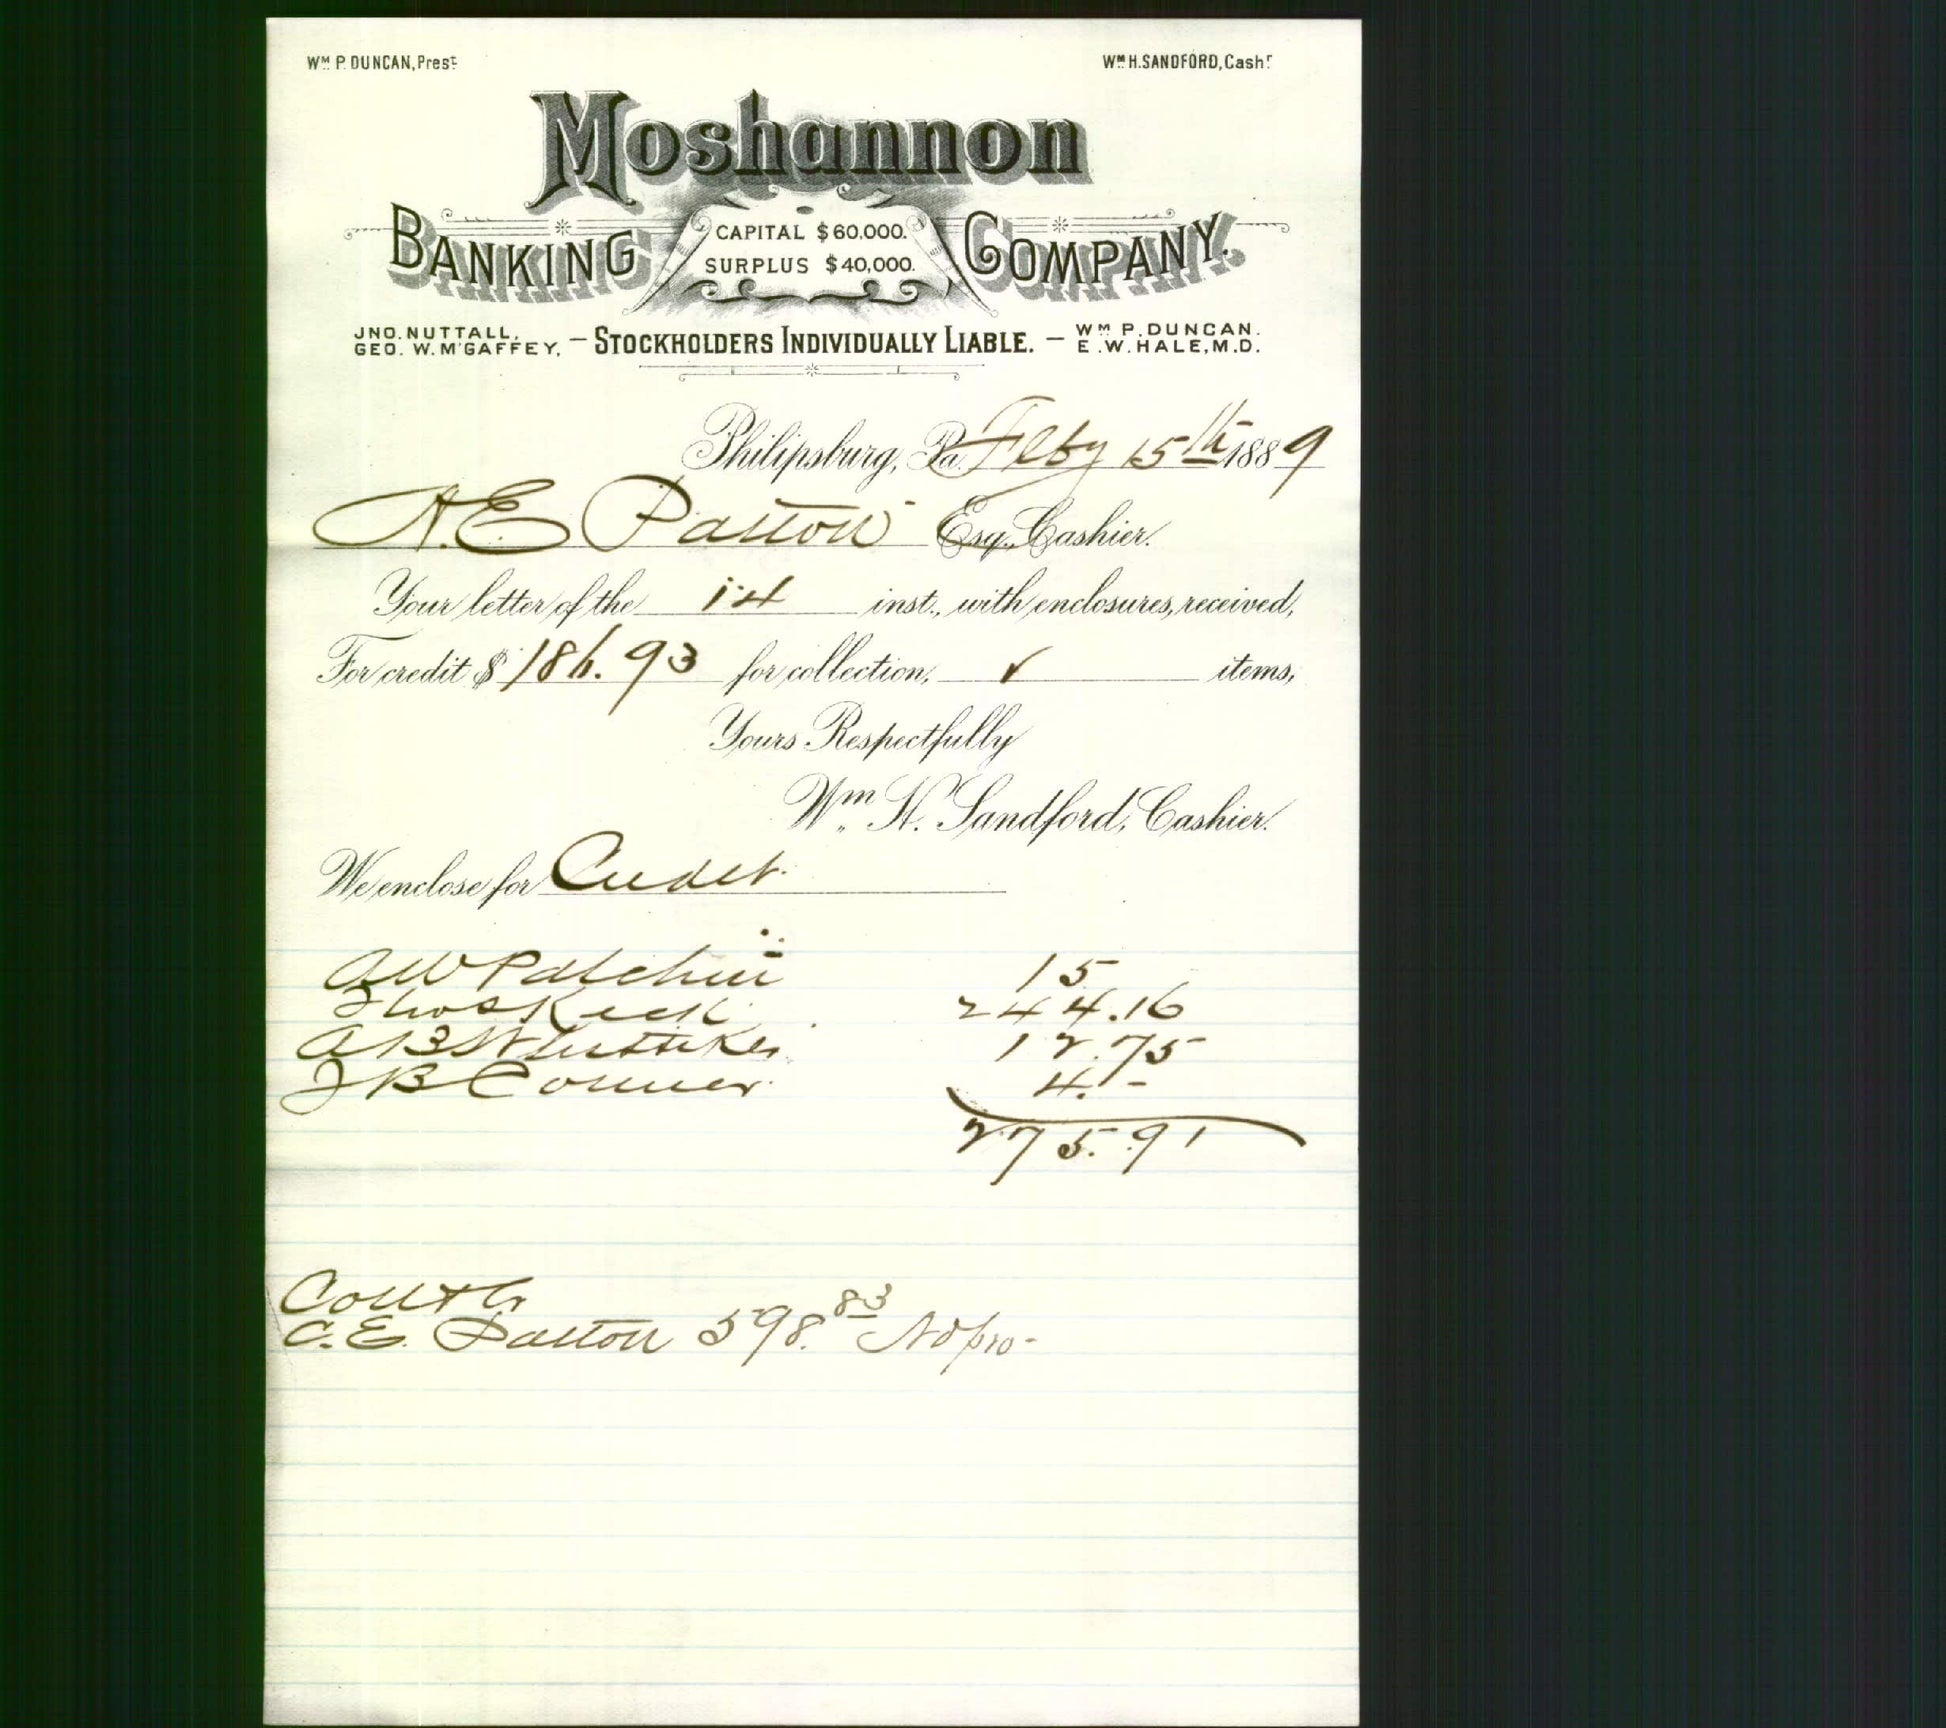 Wᴹ P. DUNCAN, Presᵗ
Wᴹ H. SANDFORD, Cashʳ
Moshannon
BANKING COMPANY.
CAPITAL $60,000.
SURPLUS $40,000.
JNO. NUTTALL,
GEO. W. MᶜGAFFEY,
— STOCKHOLDERS INDIVIDUALLY LIABLE. —
Wᴹ P. DUNCAN.
E. W. HALE, M.D.
Philipsburg, Pa. Feby 15th 1889
A. E. Patton Esq., Cashier.
Your letter of the 14 inst., with enclosures, received,
For credit $ 186.93 for collection, ✓ items,
Yours Respectfully
Wm. H. Sandford, Cashier.
We enclose for Credit.
A W Patchin 15
Thos Keck 244.16
A B 12.75
J B Conner 4.-
275.91
C. E. Patton 598.83 No pro-